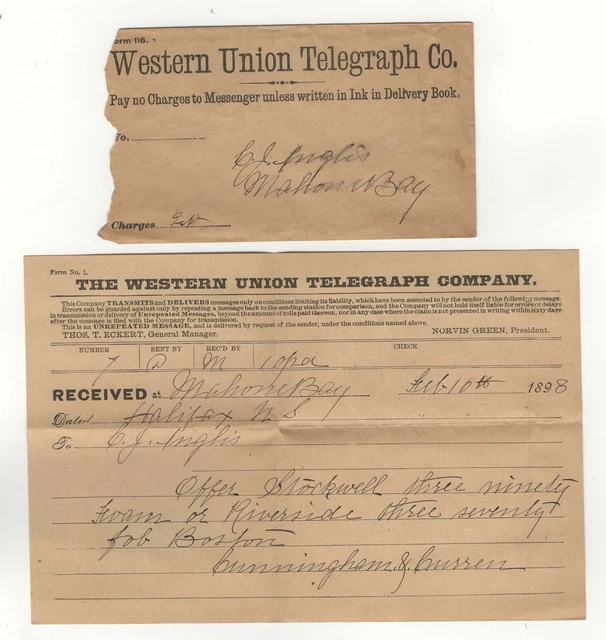 orm 116.
Western Union Telegraph Co.
Pay no Charges to Messenger unless written in Ink in Delivery Book.
To,
C. J. Inglis
Mahone Bay
Charges
Form No. 1.
THE WESTERN UNION TELEGRAPH COMPANY.
This Company TRANSMITS and DELIVERS messages only on conditions limiting its liability, which have been assented to by the sender of the following message.
Errors can be guarded against only by repeating a message back to the sending station for comparison, and the Company will not hold itself liable for errors or delays
in transmission or delivery of Unrepeated Messages, beyond the amount of tolls paid thereon, nor in any case where the claim is not presented in writing within sixty days
after the message is filed with the Company for transmission.
This is an UNREPEATED MESSAGE, and is delivered by request of the sender, under the conditions named above.
THOS. T. ECKERT, General Manager. NORVIN GREEN, President.
NUMBER SENT BY REC'D BY CHECK
7 M 10pd
RECEIVED at Mahone Bay Feb 10th 1898
Dated Halifax N S
To C. J. Inglis
Offer Stockwell three ninety
Foam or Riverside three seventy
fob Boston
Cunningham & Curren